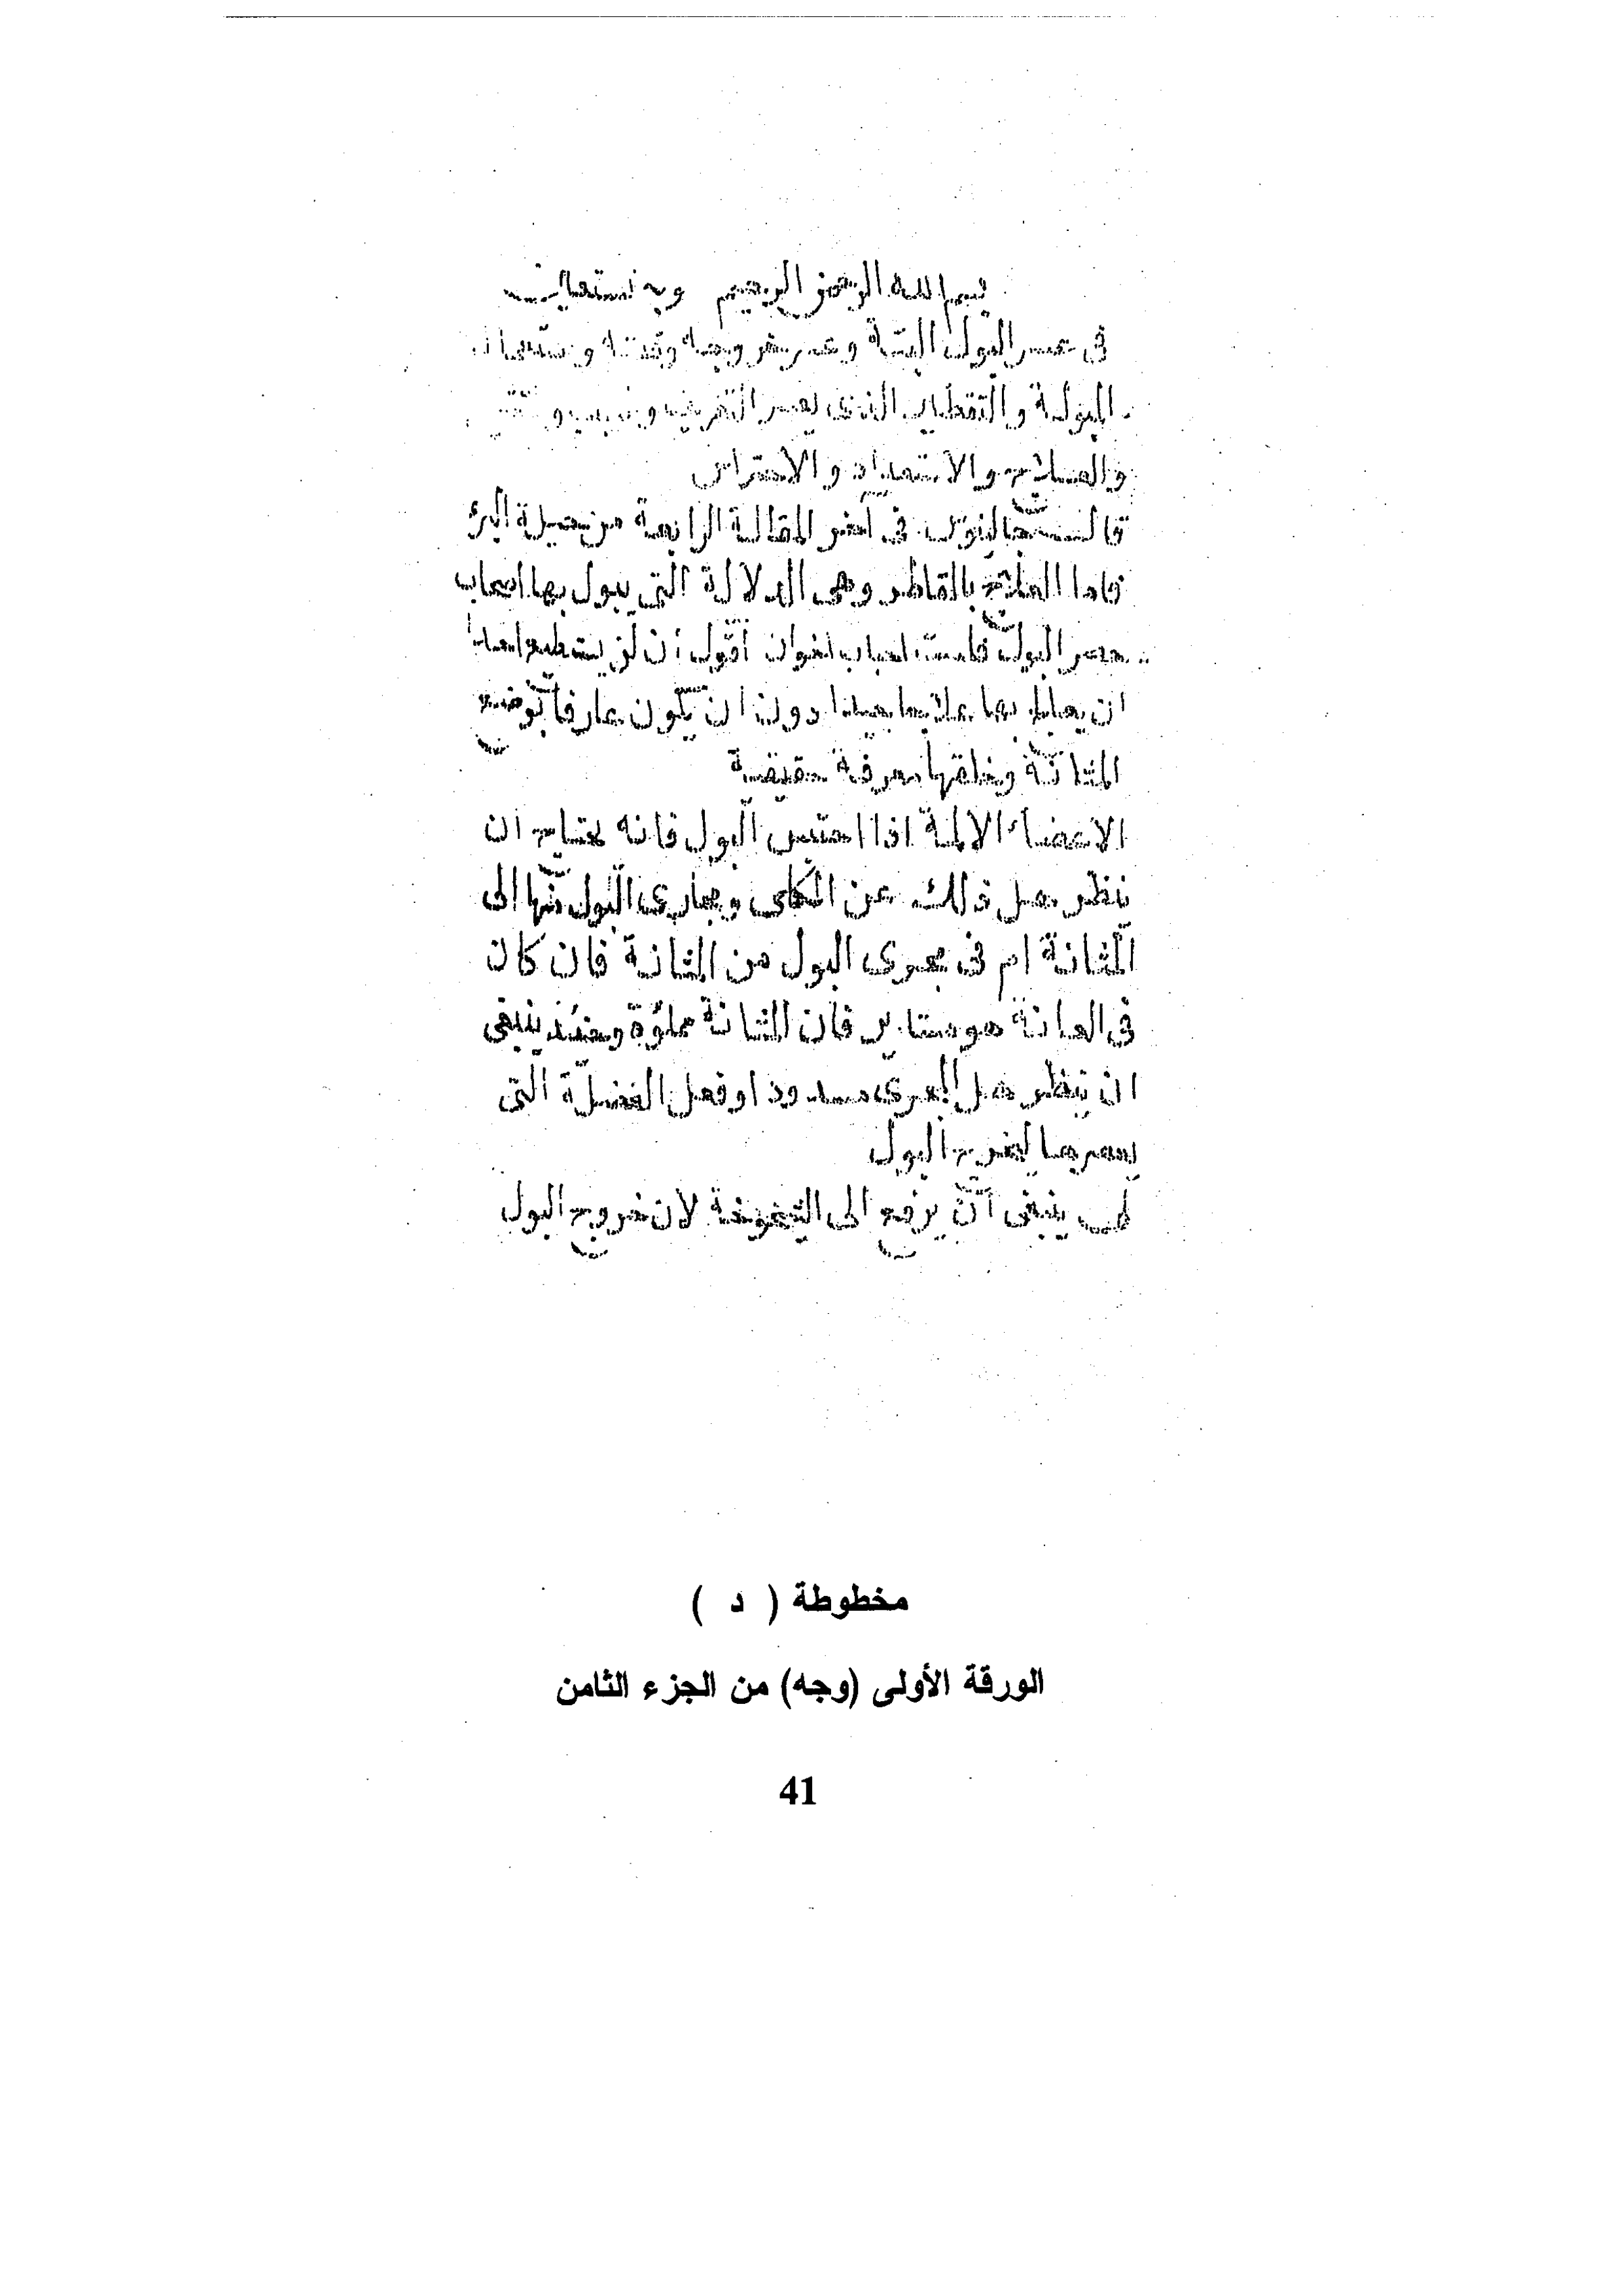 بسم الله الرحمن الرحيم وبه نستعين
فى عسر البول البتة وعسر خروجه
البولة والتقطير الذى يعسر
والعلاج والاستعداد والاحتراس
قال جالينوس فى آخر المقالة الرابعة من حيلة البرء
فاما العلاج بالقاطر وهى الدلالة التى يبول بها اصحاب
عسر البول أقول أن لن يستطيع احد
ان يعالج بها علاجا جيدا دون ان يكون عارفا بوضع
المثانة وخلقها معرفة حقيقية
الاعضاء الالمة اذا احتبس البول فانه يحتاج ان
ننظر هل ذلك عن الكلى ومجارى البول منها الى
المثانة ام فى مجرى البول من المثانة فان كان
فى العانة فان المثانة مملؤة وحينئذ ينبغى
ان ينظر هل المجرى مسدود او فعل الفضلة التى
يعصرها ليخرج البول
لى ينبغى أن يرجع الى لان خروج البول
مخطوطة ( د )
الورقة الأولى (وجه) من الجزء الثامن
41